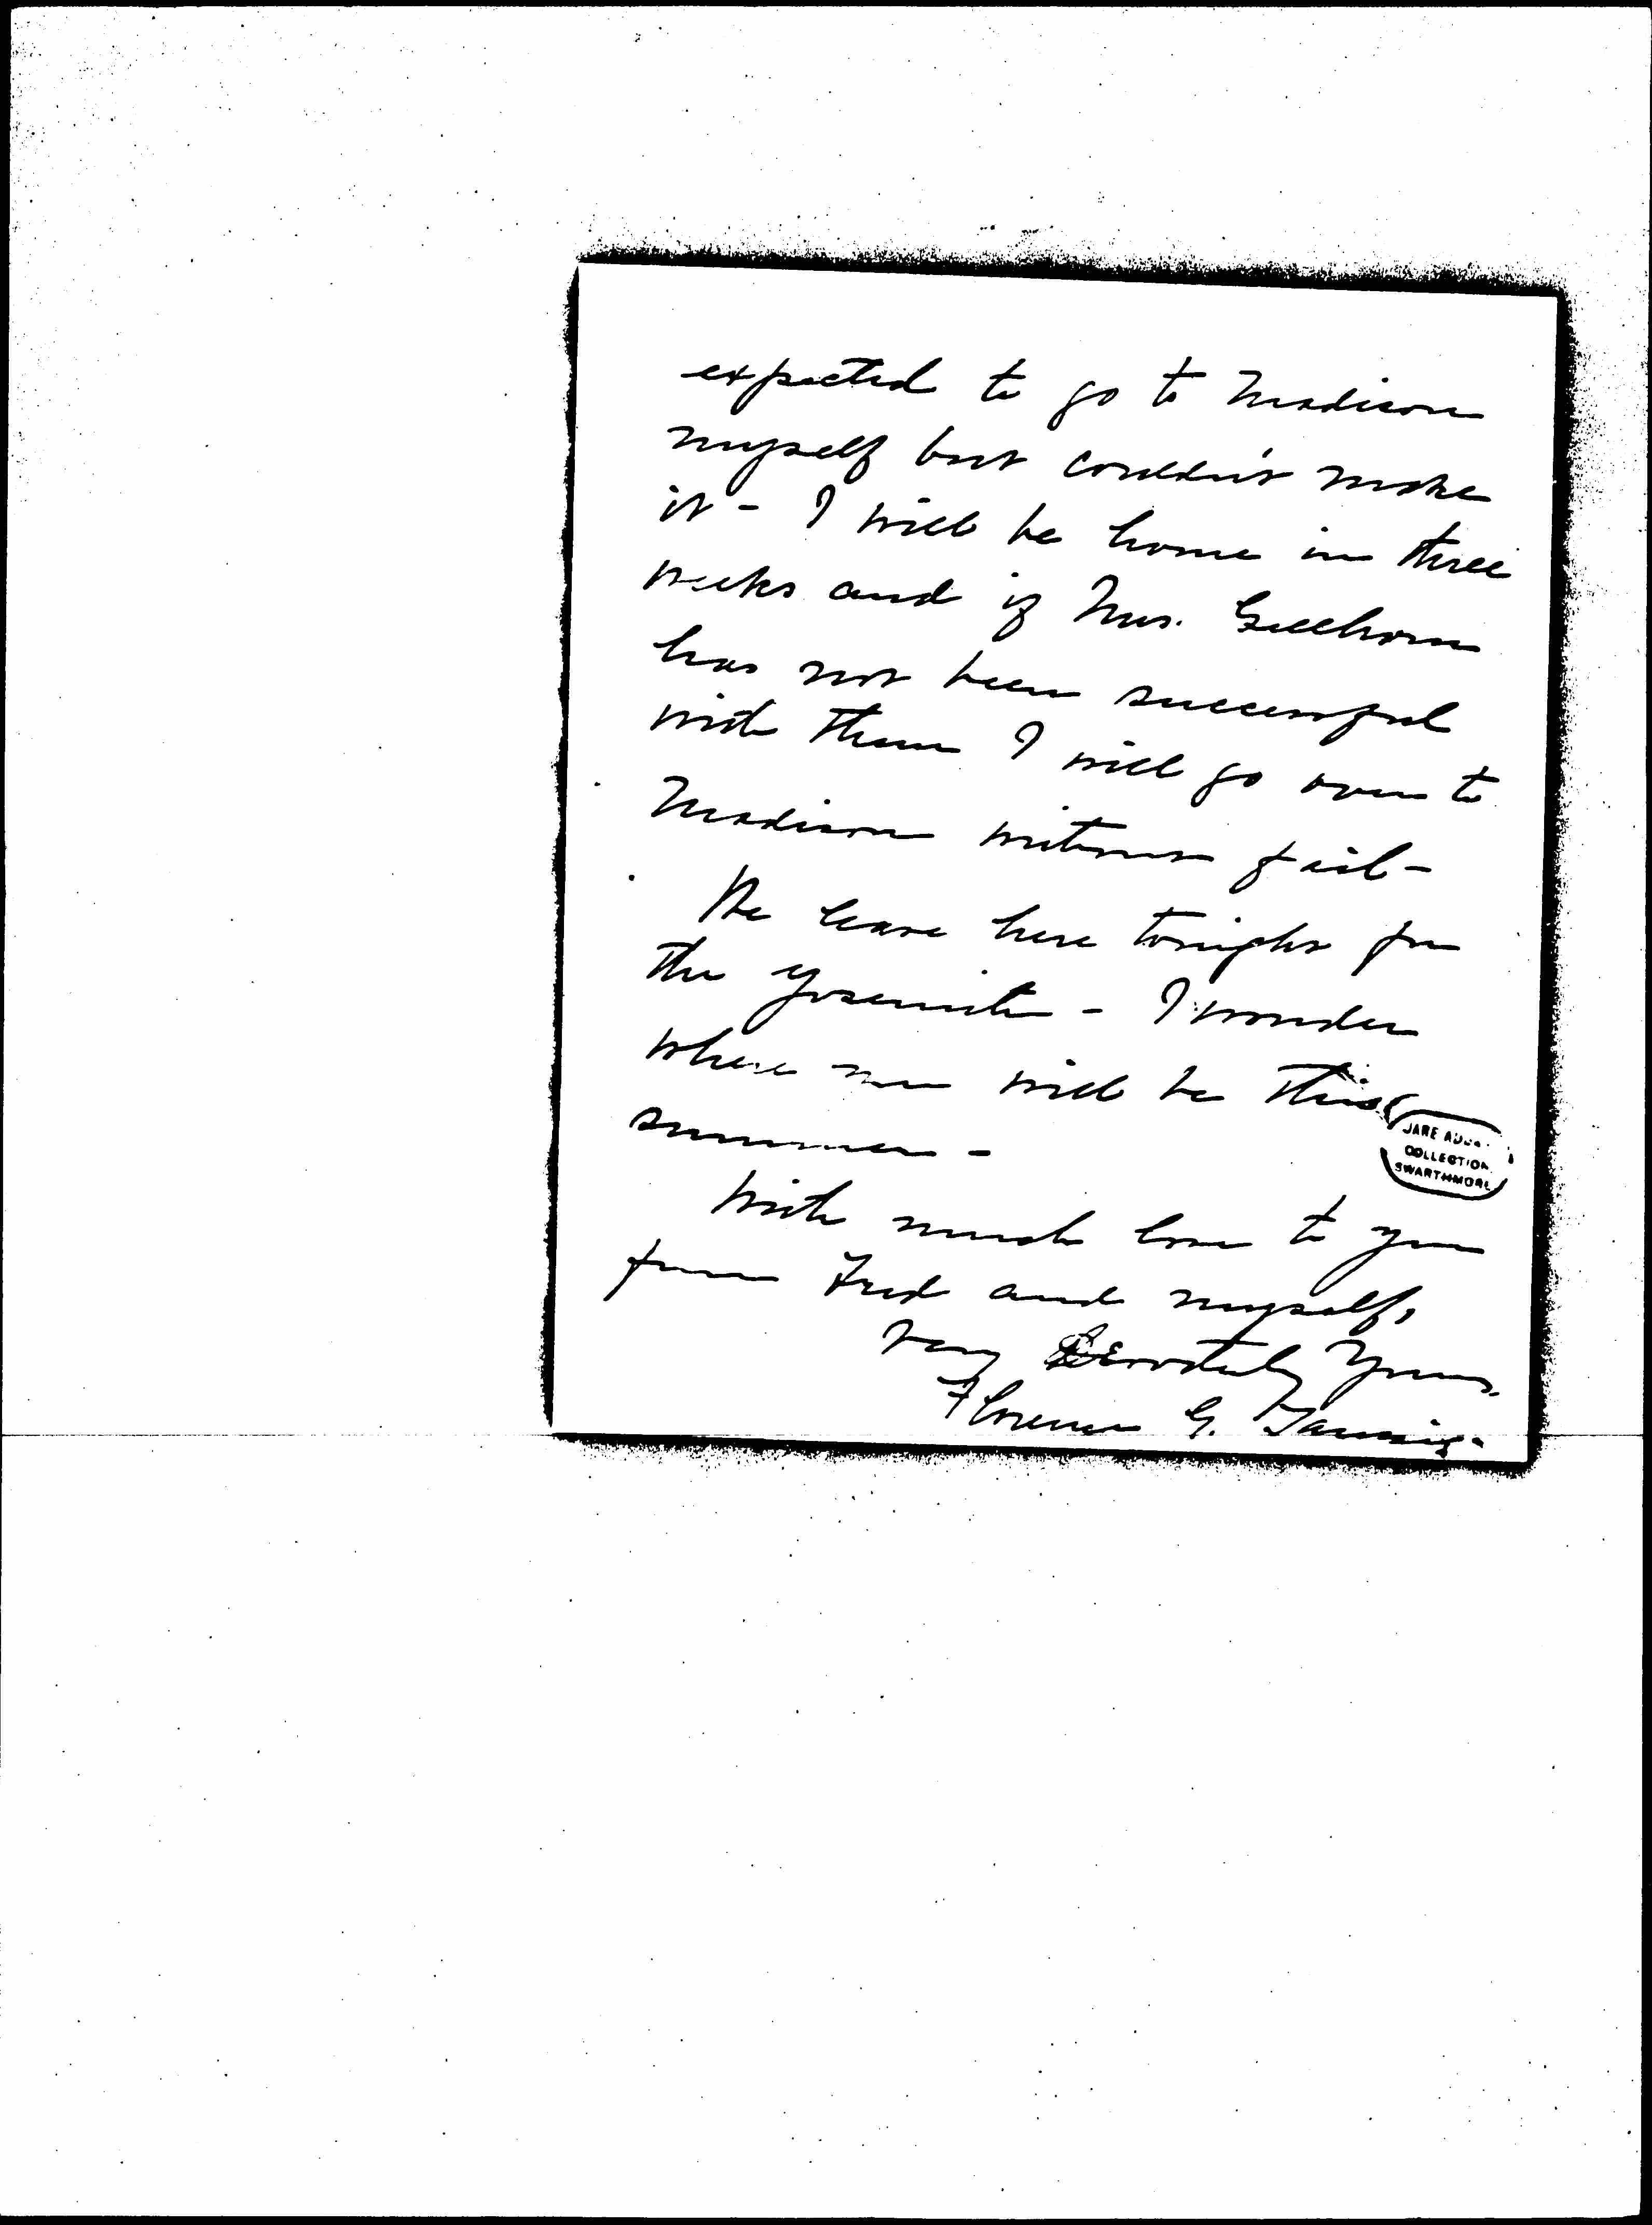 expected to go to Madison
myself but couldn't make
it - I will be home in three
weeks and if Mrs. Gellhorn
has not been successful
with them I will go over to
Madison without fail -
We leave here tonight for
the Yosemite - I wonder
where we will be this
summer -
JANE ADDA
COLLECTION
SWARTHMORE
With much love to you
from Fred and myself,
Very devotedly yours
Florence G. Taussig.